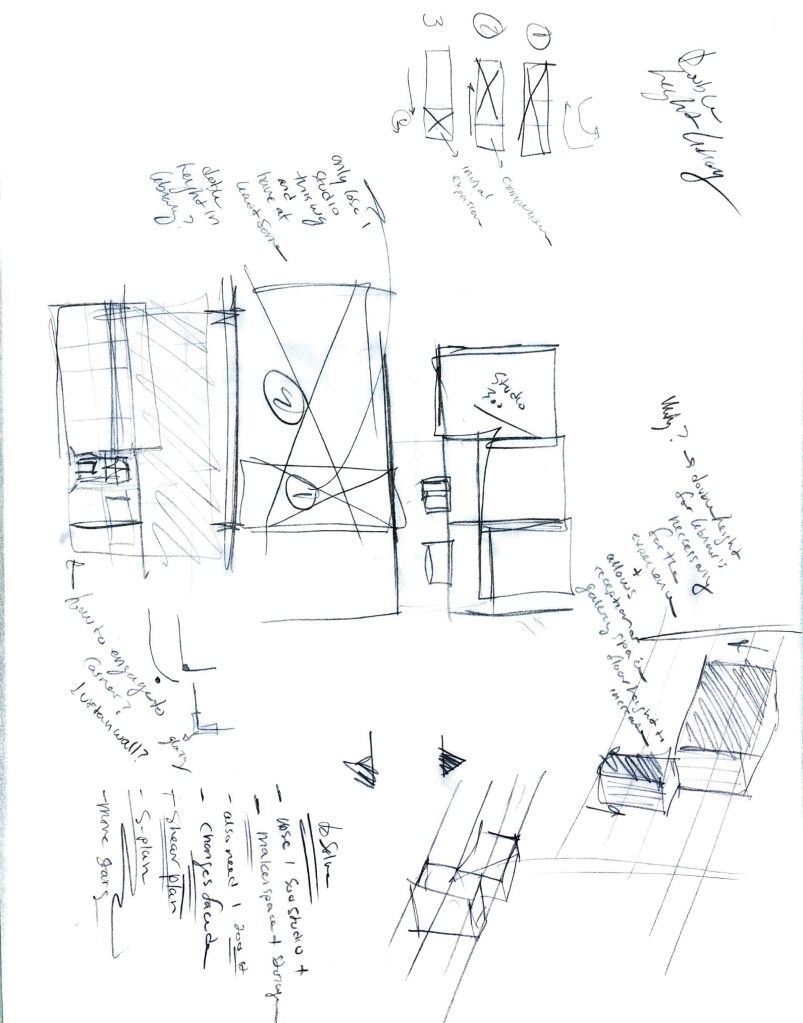 Double
height library
1
2
3
2
compression
initial
expansion
only lose 1
studio
this way
and
have at
least some
height in
library?
2
1
Studio
300
Why? → double height
for library is
neccessary
for the
experience
+
allows
reception or
gallery space
floor height to
increase
how to engage
corner?
Curtain wall?
glazing
to solve
- lose 1 500 studio +
makerspace + storage
- also need 1 200
- changes facade
+ Shear plan
- S-plan
- move stairs